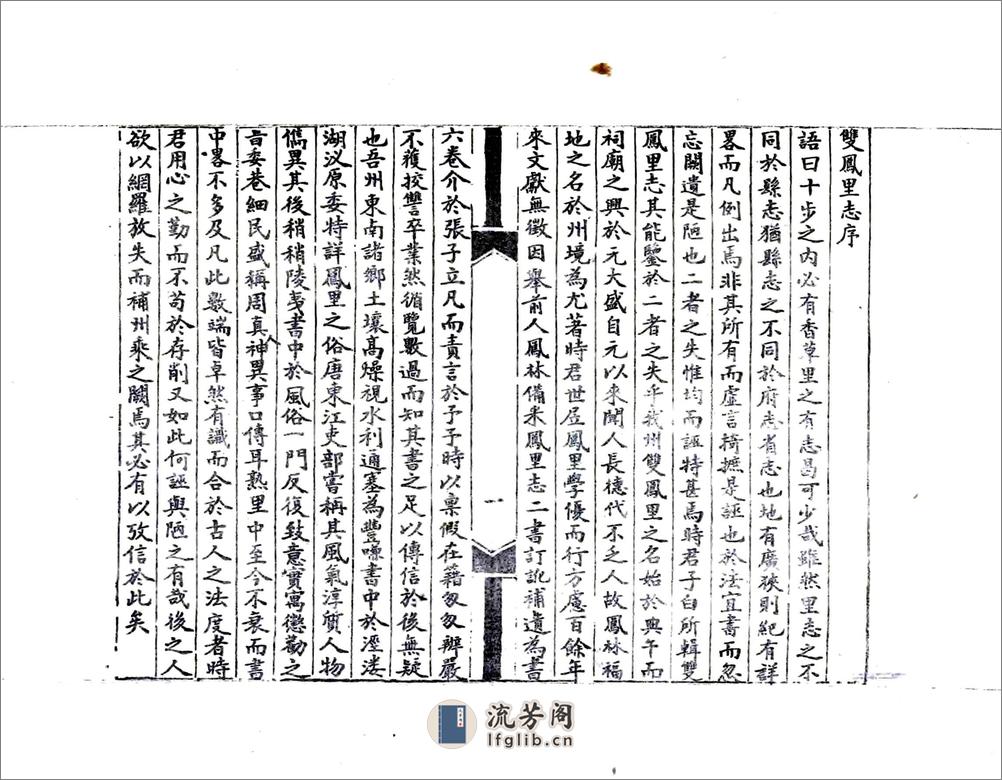 雙鳳里志序
語曰十步之內必有香草里之有志曷可少哉雖然里志之不
同於縣志猶縣志之不同於府志省志也地有廣狹則紀有詳
畧而凡例出焉非其所有而虛言掎摭是誣也於法宜書而忽
忘闕遺是陋也二者之失惟均而誣特甚焉時君子白所輯雙
鳳里志其能鑒於二者之失乎我州雙鳳里之名始於典午而
祠廟之興於元大盛自元以來聞人長德代不乏人故鳳林福
地之名於州境為尤著時君世居鳳里學優而行方慮百餘年
來文獻無徵因舉前人鳳林備采鳳里志二書訂訛補遺為書
一
六卷介於張子立凡而責言於予予時以稟假在籍匆匆辦嚴
不獲挍讐卒業然循覽數過而知其書之足以傳信於後無疑
也吾州東南諸鄉土壤高燥視水利通塞為豐嗛書中於溼漊
湖汊原委特詳鳳里之俗唐東江吏部嘗稱其風氣淳質人物
儁異其後稍稍陵夷書中於風俗一門反復致意實寓懲勸之
旨委巷細民盛稱周真人神異事口傳耳熟里中至今不衰而書
中畧不多及凡此數端皆卓然有識而合於古人之法度者時
君用心之勤而不苟於存削又如此何誣與陋之有哉後之人
欲以網羅放失而補州乘之闕焉其必有以攷信於此矣
流芳阁
lfglib.cn